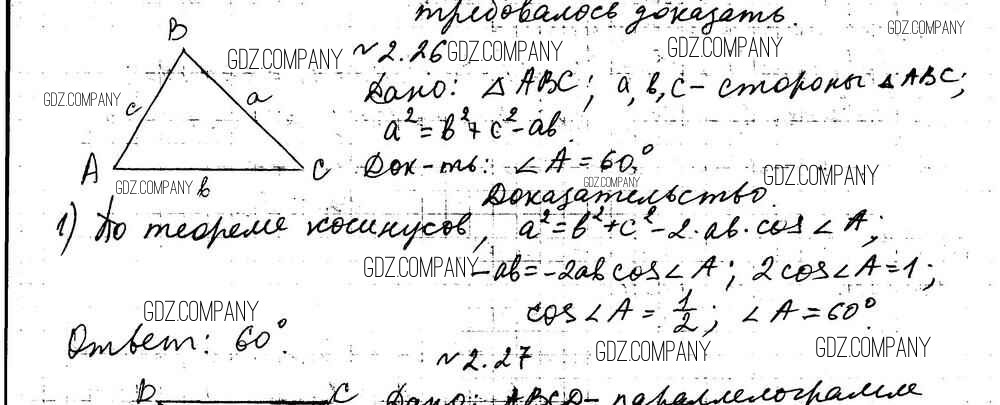 требовалось доказать.
B
GDZ.COMPANY ~ 2.26 GDZ.COMPANY GDZ.COMPANY GDZ.COMPANY
Дано: △ABC; a, b, c - стороны △ABC;
GDZ.COMPANY c a
a² = b² + c² - ab
A C Док-ть: ∠A = 60°
GDZ.COMPANY b GDZ.COMPANY GDZ.COMPANY
Доказательство.
1) По теореме косинусов, a² = b² + c² - 2·ab·cos∠A;
GDZ.COMPANY -ab = -2ab cos∠A; 2cos∠A = 1;
GDZ.COMPANY cos∠A = 1/2; ∠A = 60°
Ответ: 60°.
~ 2.27 GDZ.COMPANY GDZ.COMPANY
B C Дано: ABCD - параллелограмм